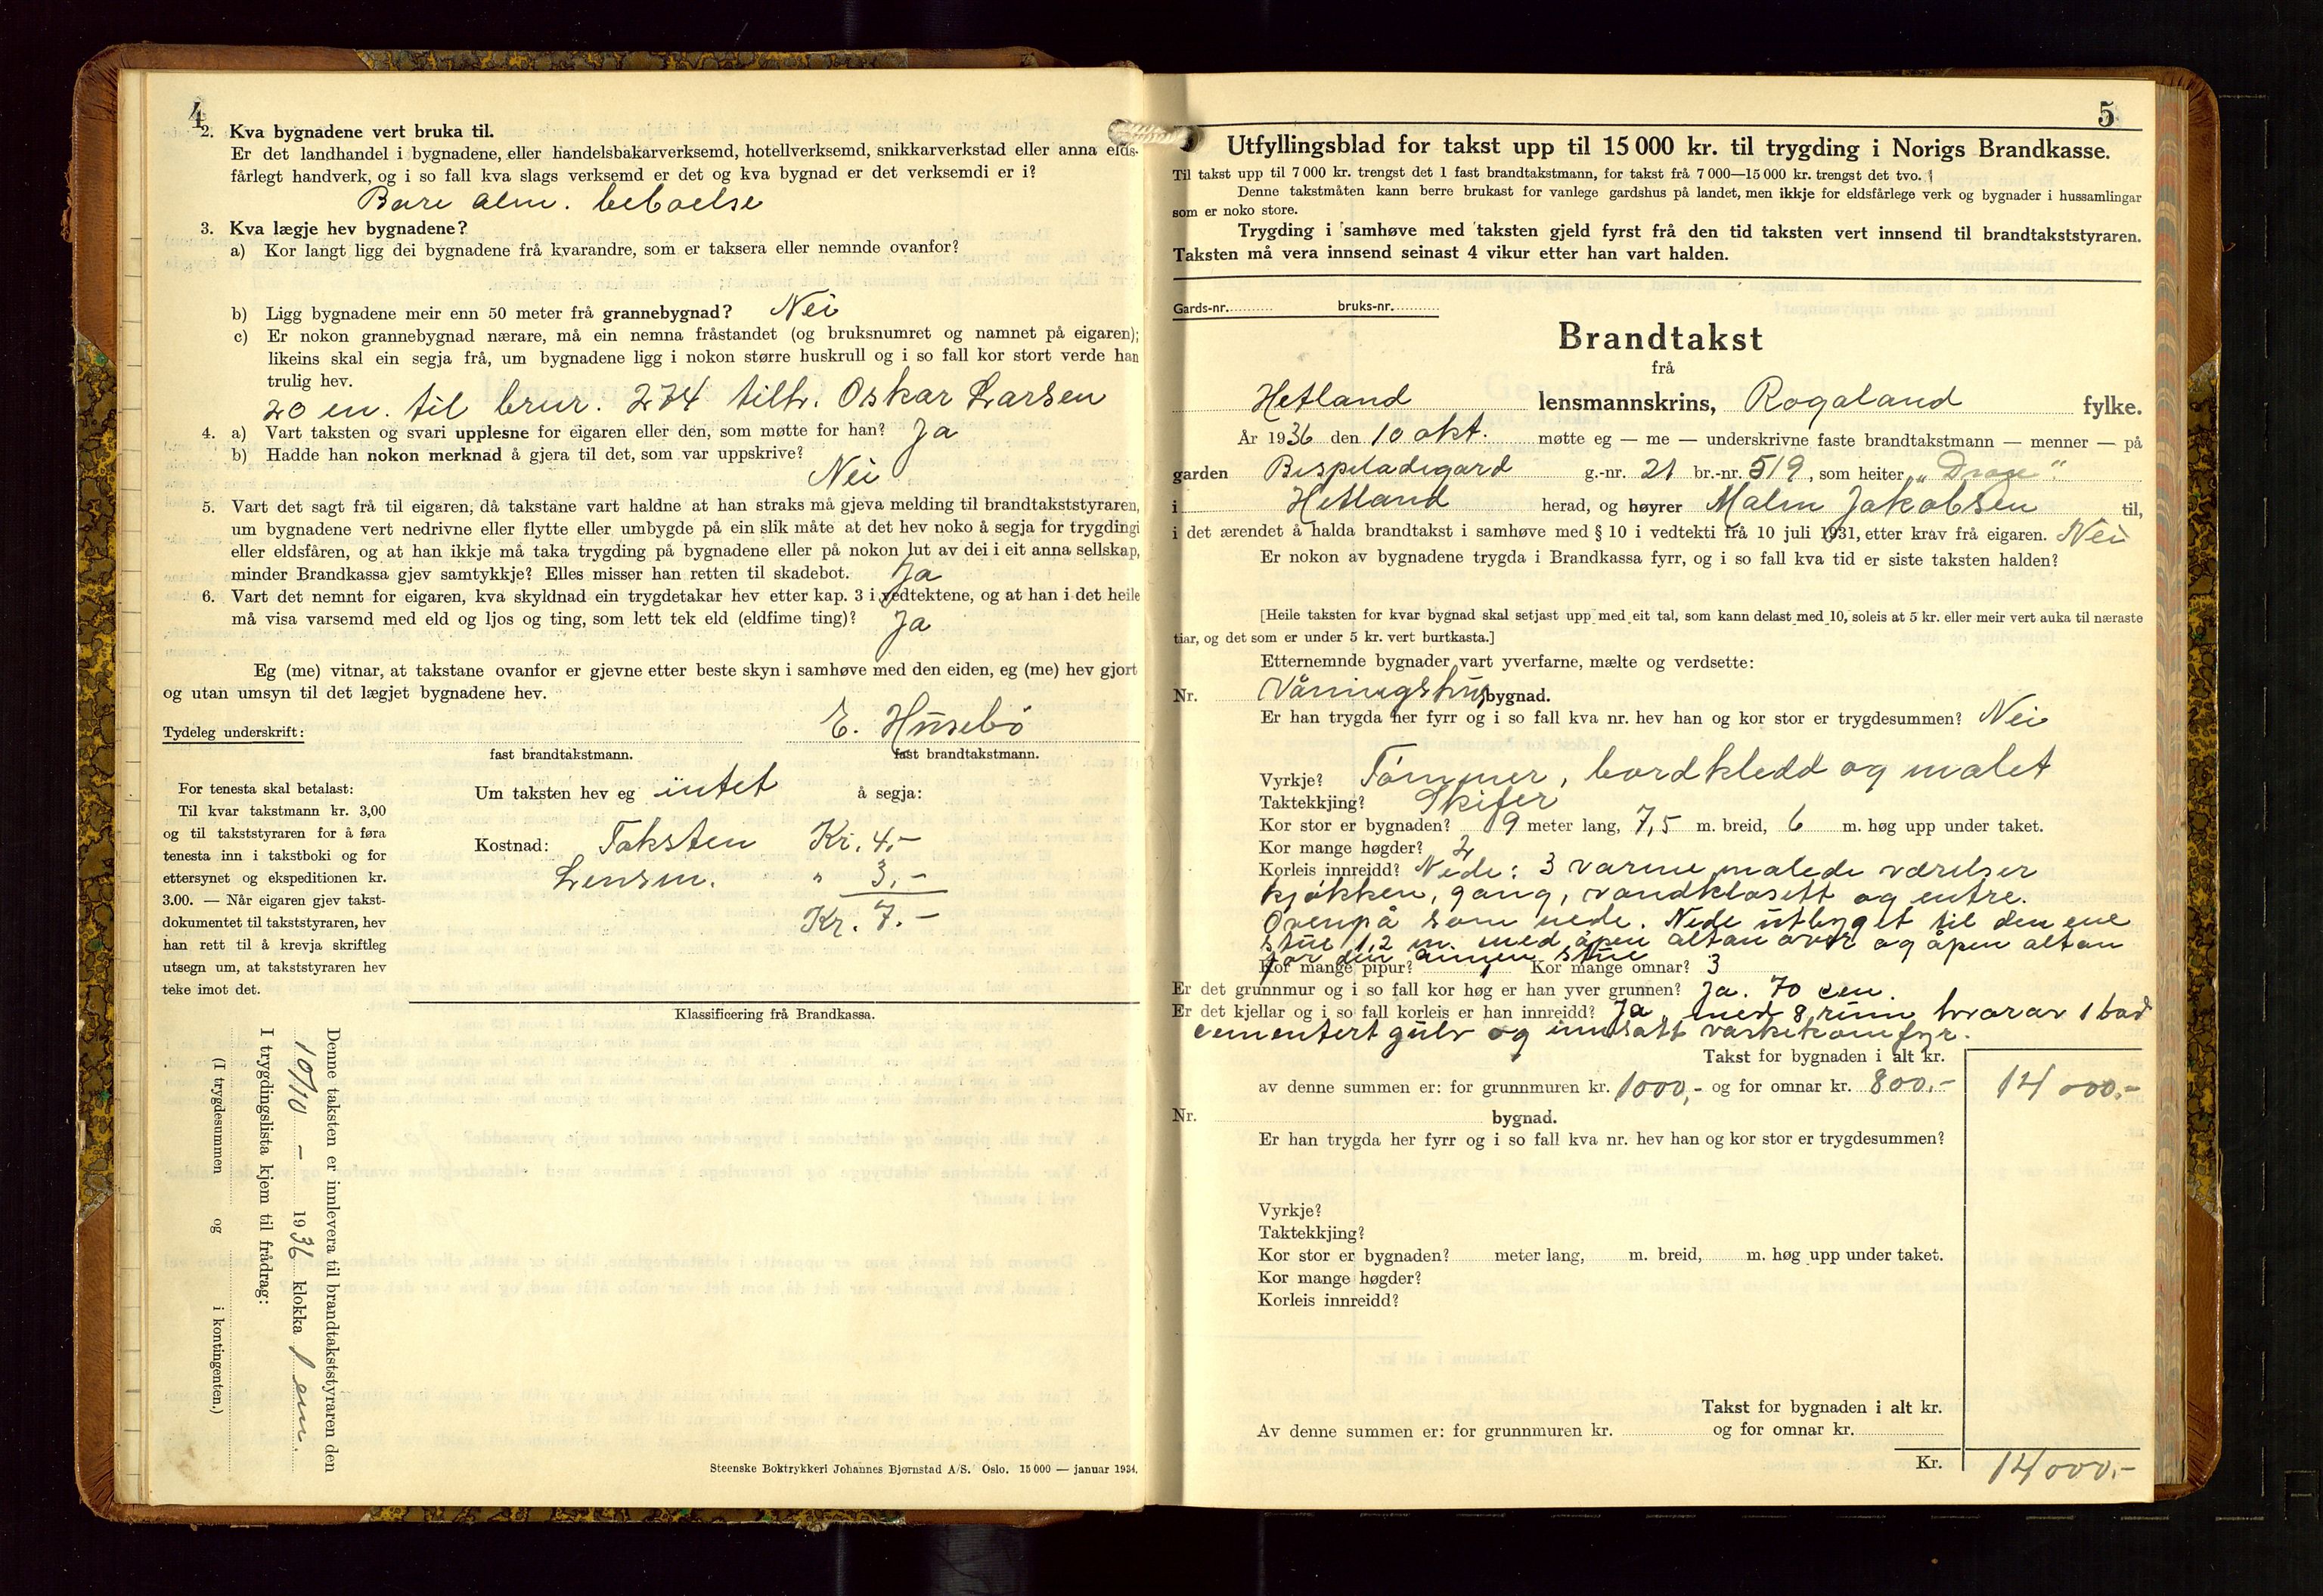 4
2. Kva bygnadene vert bruka til.
Er det landhandel i bygnadene, eller handelsbakarverksemd, hotellverksemd, snikkarverkstad eller anna elds-
fårlegt handverk, og i so fall kva slags verksemd er det og kva bygnad er det verksemdi er i?
Bare alm. beboelse
3. Kva lægje hev bygnadene?
a) Kor langt ligg dei bygnadene frå kvarandre, som er taksera eller nemnde ovanfor?
b) Ligg bygnadene meir enn 50 meter frå grannebygnad? Nei
c) Er nokon grannebygnad nærare, må ein nemna fråstandet (og bruksnumret og namnet på eigaren);
likeins skal ein segja frå, um bygnadene ligg i nokon større huskrull og i so fall kor stort verde han
trulig hev.
20 m. til brnr. 274 tilh. Oskar Larsen
4. a) Vart taksten og svari upplesne for eigaren eller den, som møtte for han? Ja
b) Hadde han nokon merknad å gjera til det, som var uppskrive?
Nei
5. Vart det sagt frå til eigaren, då takstane vart haldne at han straks må gjeva melding til brandtakststyraren,
um bygnadene vert nedrivne eller flytte eller umbygde på ein slik måte at det hev noko å segja for trygdingi
eller eldsfåren, og at han ikkje må taka trygding på bygnadene eller på nokon lut av dei i eit anna sellskap,
minder Brandkassa gjev samtykkje? Elles misser han retten til skadebot. Ja
6. Vart det nemnt for eigaren, kva skyldnad ein trygdetakar hev etter kap. 3 i vedtektene, og at han i det heile
må visa varsemd med eld og ljos og ting, som lett tek eld (eldfime ting)? Ja
Eg (me) vitnar, at takstane ovanfor er gjevne etter beste skyn i samhøve med den eiden, eg (me) hev gjort
og utan umsyn til det lægjet bygnadene hev.
Tydeleg underskrift: E. Husebö
fast brandtakstmann. fast brandtakstmann.
For tenesta skal betalast:
Til kvar takstmann kr. 3,00
og til takststyraren for å føra
tenesta inn i takstboki og for
ettersynet og ekspeditionen kr.
3.00. — Når eigaren gjev takst-
dokumentet til takststyraren, hev
han rett til å krevja skriftleg
utsegn um, at takststyraren hev
teke imot det.
Um taksten hev eg intet å segja:
Kostnad: Taksten Kr. 4,-
Lensm. " 3,-
Kr. 7.-
Klassificering frå Brandkassa.
Denne taksten er innlevera til brandtakststyraren den
10/10 - 1936 klokka 1 em.
I trygdingslista kjem til frådrag:
(I trygdesummen og i kontingenten.)
Steenske Boktrykkeri Johannes Bjørnstad A/S. Oslo. 15 000 — januar 1934.
5
Utfyllingsblad for takst upp til 15 000 kr. til trygding i Norigs Brandkasse.
Til takst upp til 7 000 kr. trengst det 1 fast brandtakstmann, for takst frå 7 000—15 000 kr. trengst det tvo.
Denne takstmåten kann berre brukast for vanlege gardshus på landet, men ikkje for eldsfårlege verk og bygnader i hussamlingar
som er noko store.
Trygding i samhøve med taksten gjeld fyrst frå den tid taksten vert innsend til brandtakststyraren.
Taksten må vera innsend seinast 4 vikur etter han vart halden.
Gards-nr. bruks-nr.
Brandtakst
frå
Hetland lensmannskrins, Rogaland fylke.
År 1936 den 10 okt. møtte eg — me — underskrivne faste brandtakstmann — menner — på
garden Bispeladegard g.-nr. 21 br.-nr. 519, som heiter
i Hetland herad, og høyrer Malm Jakobsen til,
i det ærendet å halda brandtakst i samhøve med § 10 i vedtekti frå 10 juli 1931, etter krav frå eigaren. Nei
Er nokon av bygnadene trygda i Brandkassa fyrr, og i so fall kva tid er siste taksten halden?
[Heile taksten for kvar bygnad skal setjast upp med eit tal, som kann delast med 10, soleis at 5 kr. eller meir vert auka til næraste
tiar, og det som er under 5 kr. vert burtkasta.]
Etternemnde bygnader vart yverfarne, mælte og verdsette:
Nr. Våningshus bygnad.
Er han trygda her fyrr og i so fall kva nr. hev han og kor stor er trygdesummen? Nei
Vyrkje? Tömmer, bordkledd og malet
Taktekkjing? Skifer
Kor stor er bygnaden? 9 meter lang, 7,5 m. breid, 6 m. høg upp under taket.
Kor mange høgder? 2
Korleis innreidd? Nede: 3 varme malede værelser
kjøkken, gang, vandklosett og entre.
Ovenpå som nede. Nede utbygget til den ene
stue 1,2 m. med åpen altan over og åpen altan
for den annen stue
Kor mange pipur? 1 Kor mange omnar? 3
Er det grunnmur og i so fall kor høg er han yver grunnen? Ja. 70 cm.
Er det kjellar og i so fall korleis er han innreidd? Ja, med 8 rum hvorav 1 bad
cementert gulv og innsatt vaskekomfyr.
Takst for bygnaden i alt kr.
av denne summen er: for grunnmuren kr. 1000,- og for omnar kr. 800.- 14 000.-
Nr. bygnad.
Er han trygda her fyrr og i so fall kva nr. hev han og kor stor er trygdesummen?
Vyrkje?
Taktekkjing?
Kor stor er bygnaden? meter lang, m. breid, m. høg upp under taket.
Kor mange høgder?
Korleis innreidd?
Takst for bygnaden i alt kr.
Av denne summen er: for grunnmuren kr. og for omnar kr.
Kr. 14 000,-